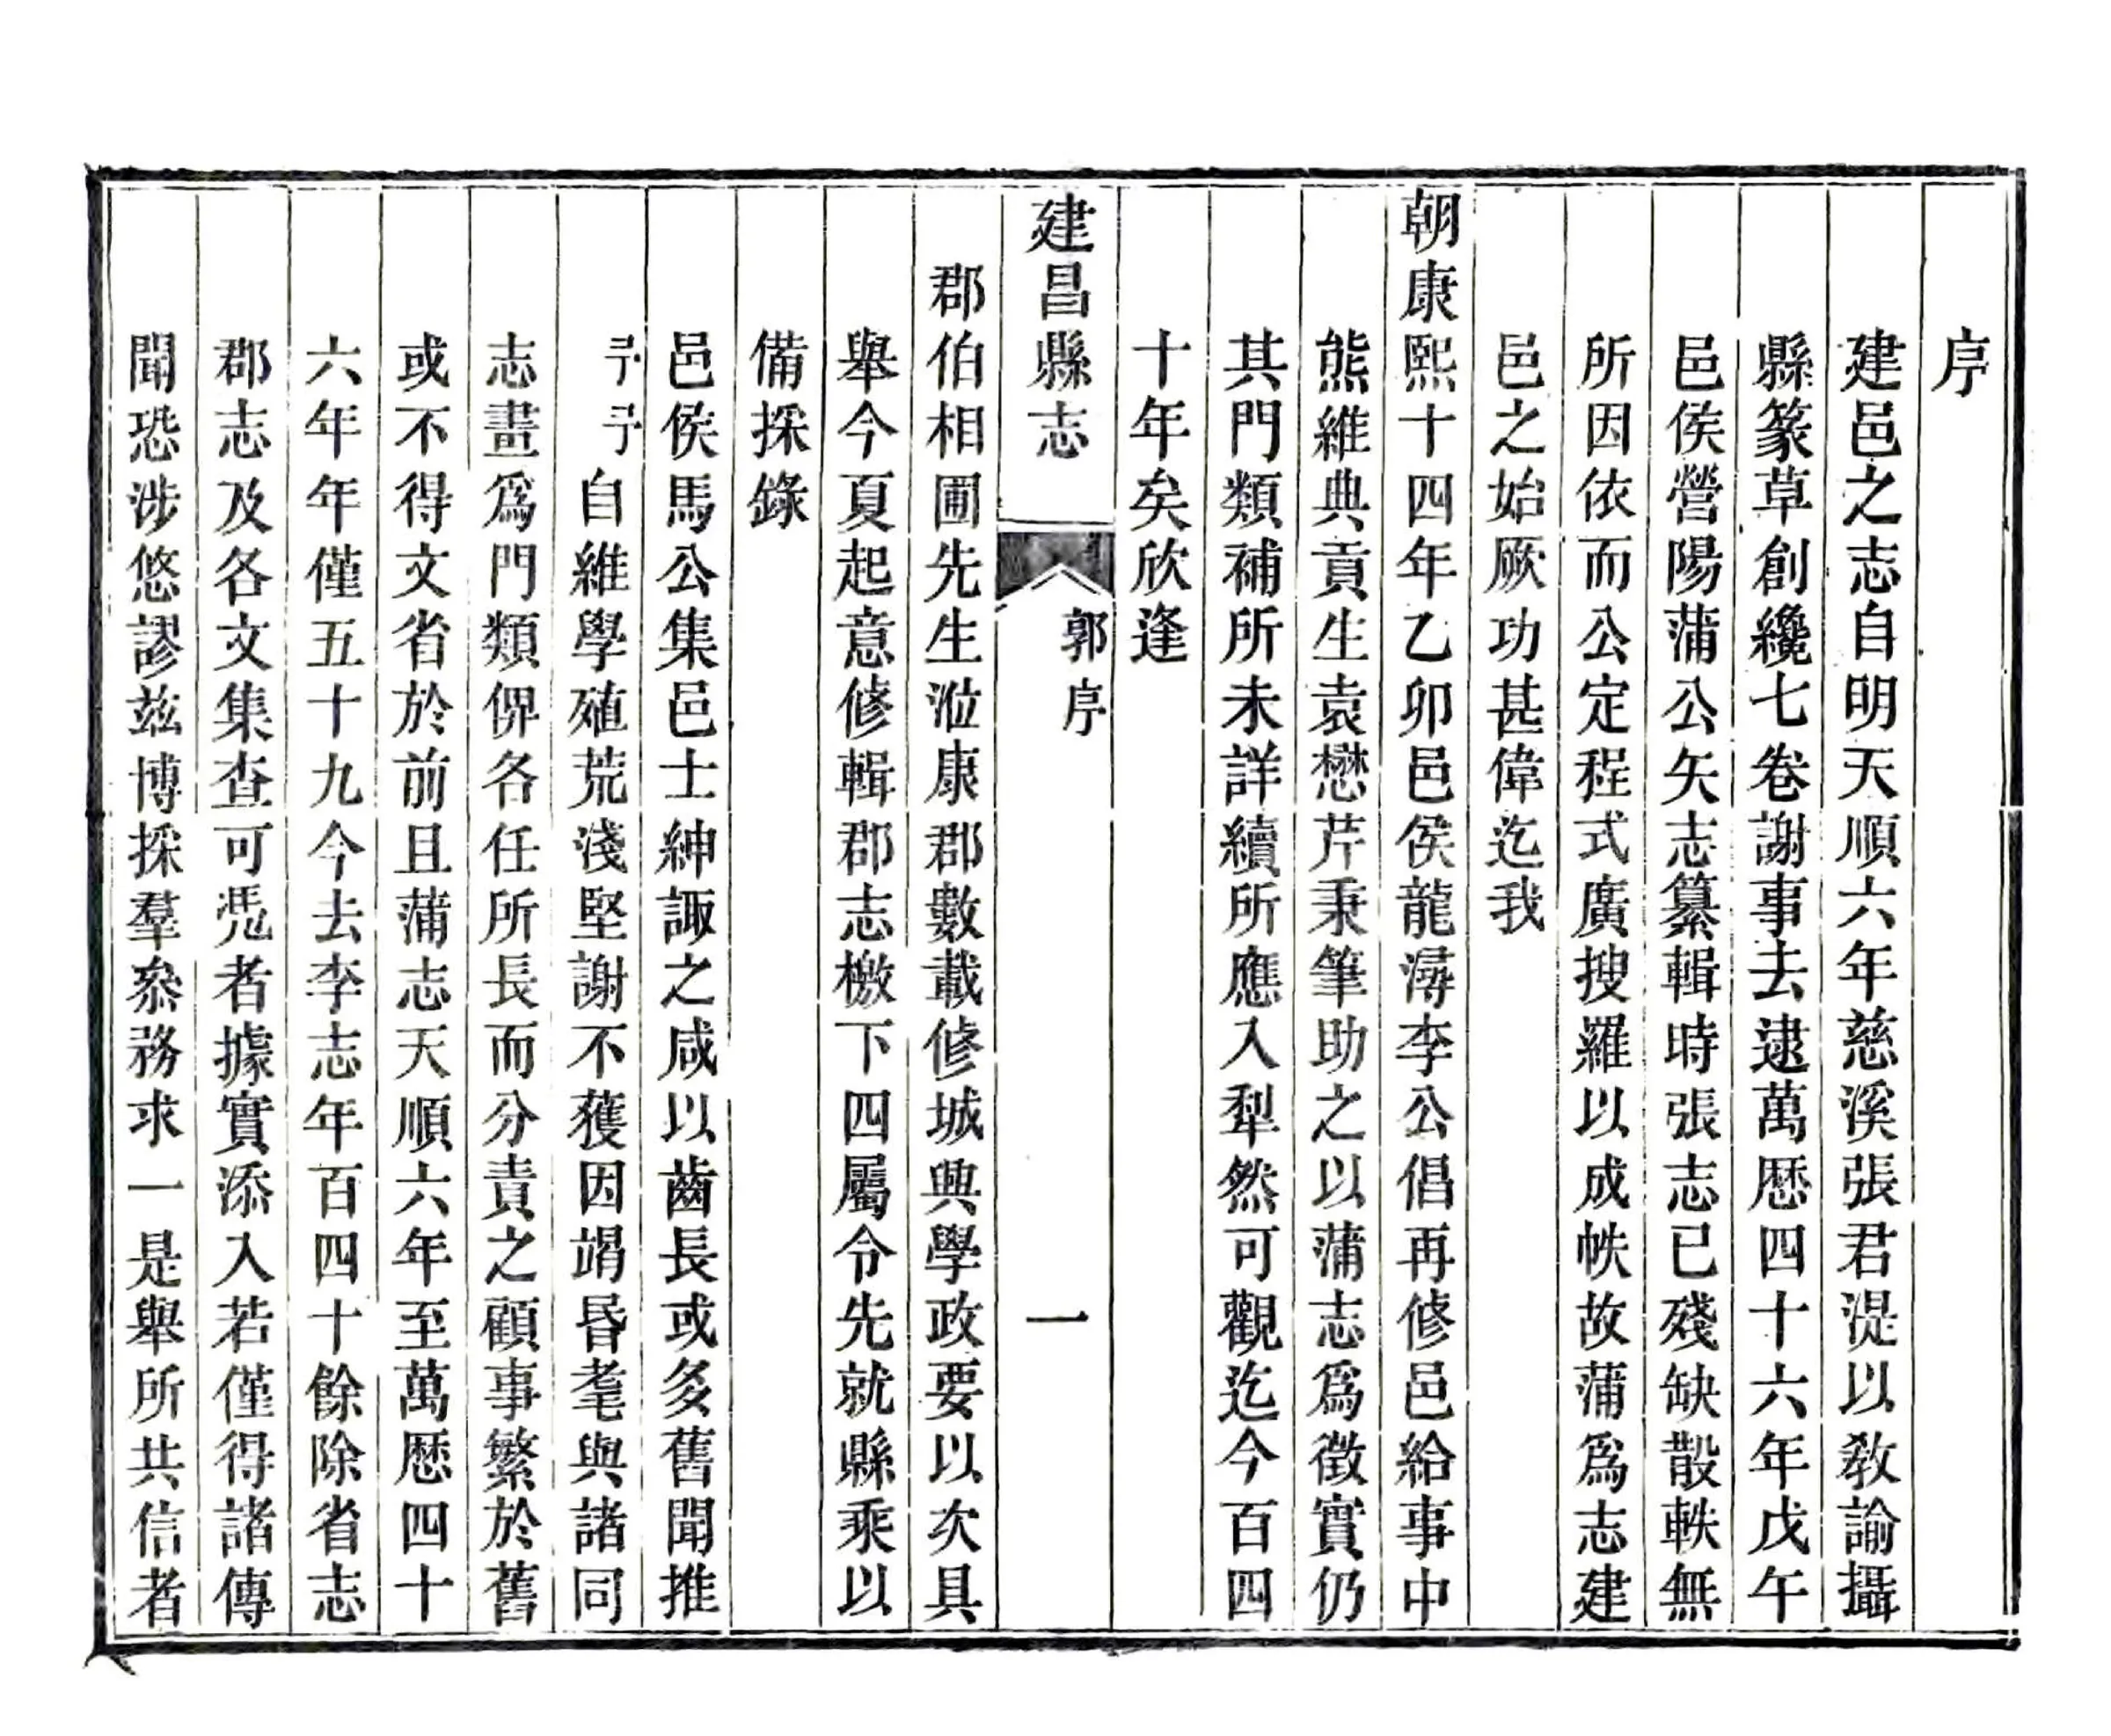 序
建邑之志自明天順六年慈溪張君湜以敎諭攝
縣篆草創纔七卷謝事去逮萬厯四十六年戊午
邑侯營陽蒲公矢志纂輯時張志已殘缺散軼無
所因依而公定程式廣搜羅以成帙故蒲爲志建
邑之始厥功甚偉迄我
朝康熙十四年乙卯邑侯龍潯李公倡再修邑給事中
熊維典貢生袁懋芹秉筆助之以蒲志爲徵實仍
其門類補所未詳續所應入犁然可觀迄今百四
十年矣欣逢
建昌縣志
郭序
一
郡伯相圃先生涖康郡數載修城興學政要以次具
舉今夏起意修輯郡志檄下四屬令先就縣乘以
備採錄
邑侯馬公集邑士紳諏之咸以齒長或多舊聞推
予予自維學殖荒淺堅謝不獲因竭昬耄與諸同
志畫爲門類俾各任所長而分責之顧事繁於舊
或不得文省於前且蒲志天順六年至萬厯四十
六年年僅五十九今去李志年百四十餘除省志
郡志及各文集查可凴者據實添入若僅得諸傳
聞恐涉悠謬兹博採羣叅務求一是舉所共信者